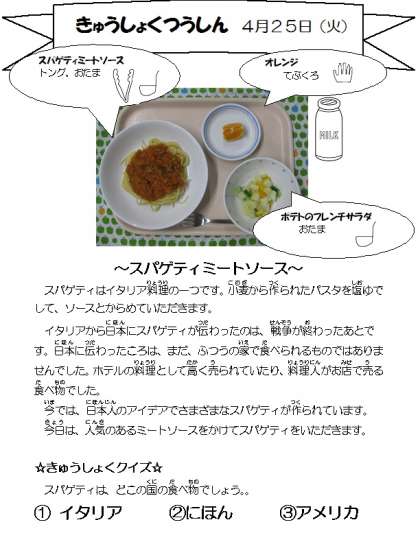 きゅうしょくつうしん　４月２５日（火）
スパゲティミートソース
トング、おたま
オレンジ
てぶくろ
MILK
ポテトのフレンチサラダ
おたま
～スパゲティミートソース～
スパゲティはイタリア料理の一つです。小麦から作られたパスタを塩ゆで
して、ソースとからめていただきます。
イタリアから日本にスパゲティが伝わったのは、戦争が終わったあとで
す。日本に伝わったころは、まだ、ふつうの家で食べられるものではありま
せんでした。ホテルの料理として高く売られていたり、料理人がお店で売る
食べ物でした。
今では、日本人のアイデアでさまざまなスパゲティが作られています。
今日は、人気のあるミートソースをかけてスパゲティをいただきます。
☆きゅうしょくクイズ☆
スパゲティは、どこの国の食べ物でしょう。。
① イタリア　②にほん　③アメリカ